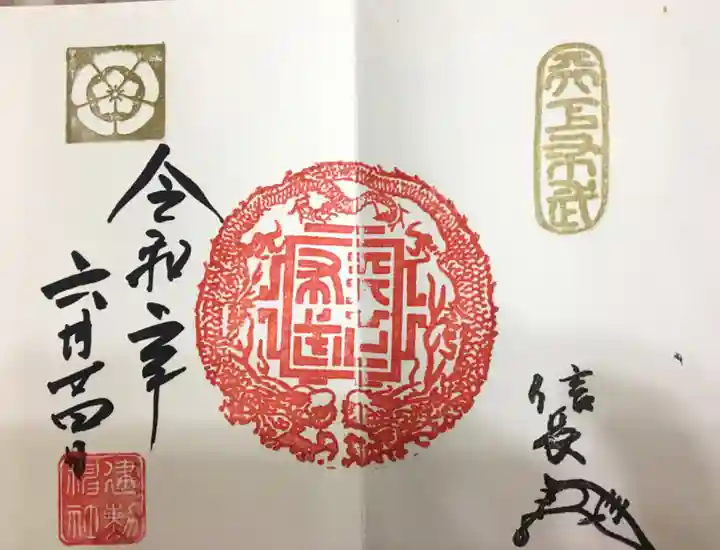 天下布武
信長
天下布武
令和元年
六月廿四日
建勲神社